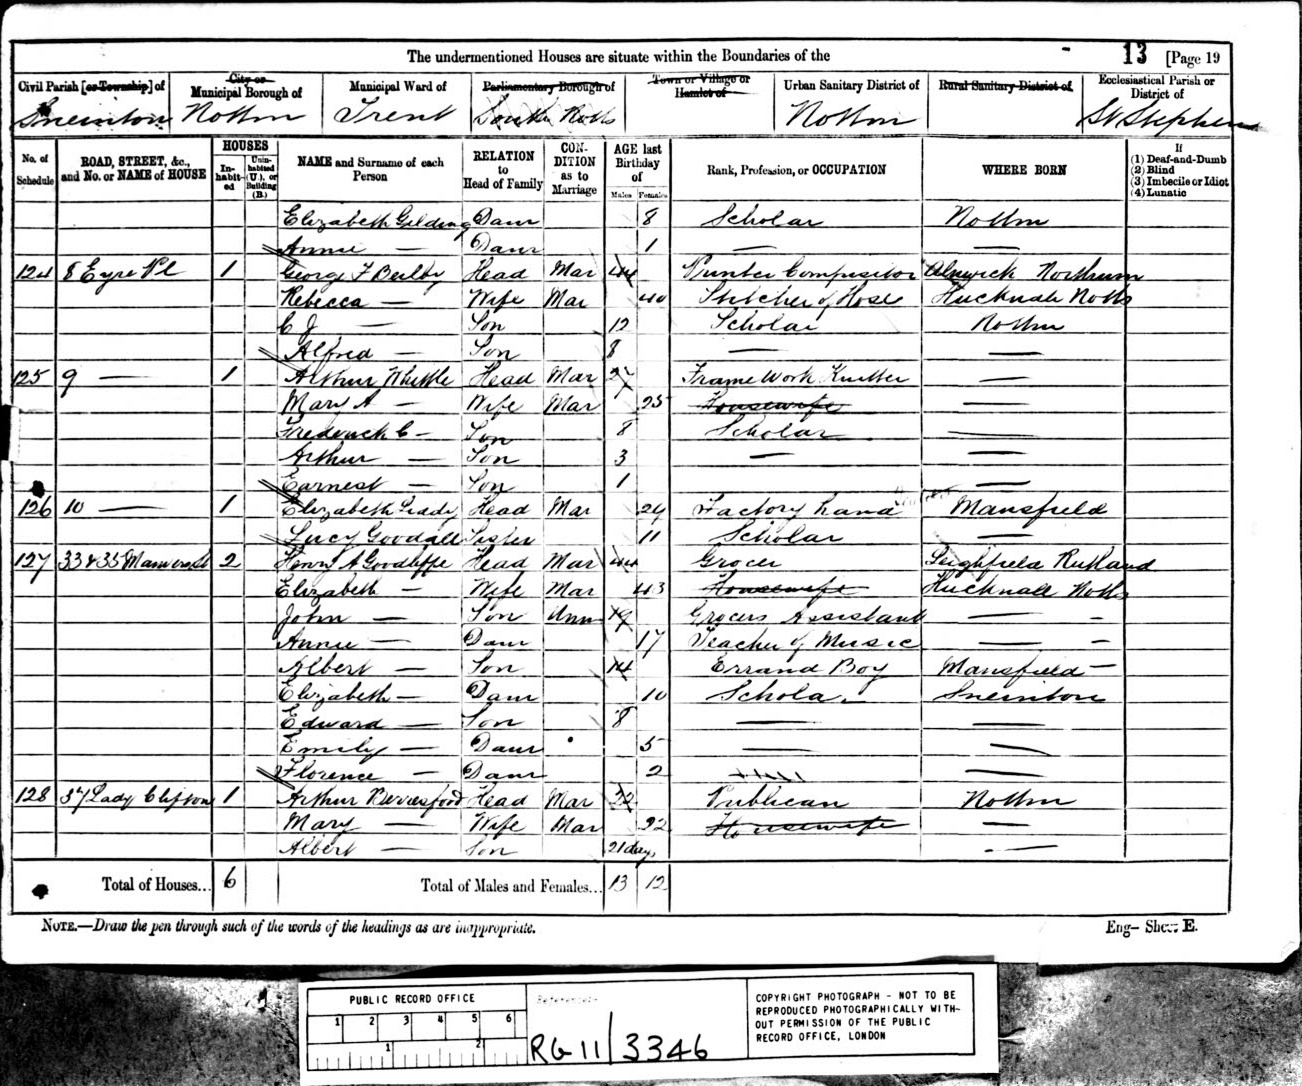 The undermentioned Houses are situate within the Boundaries of the 13 [Page 19
Civil Parish [or Township] of City or Municipal Borough of Municipal Ward of Parliamentary Borough of Town or Village or Hamlet of Urban Sanitary District of Rural Sanitary District of Ecclesiastical Parish or District of
Sneinton Nottm Trent South Notts Nottm St Stephen
No. of Schedule ROAD, STREET, &c., and No. or NAME of HOUSE HOUSES Inhabited Uninhabited (U.), or Building (B.) NAME and Surname of each Person RELATION to Head of Family CONDITION as to Marriage AGE last Birthday of Males Females Rank, Profession, or OCCUPATION WHERE BORN If (1) Deaf-and-Dumb (2) Blind (3) Imbecile or Idiot (4) Lunatic
Elizabeth Gelding Daur 8 Scholar Nottm
Annie — Daur 1 — —
124 8 Eyre Pl 1 George F Beilby Head Mar 44 Printer Compositor Alnwick Northum
Rebecca — Wife Mar 40 Stitcher of Hose Hucknall Notts
C J — Son 12 Scholar Nottm
Alfred — Son 8 — —
125 9 — 1 Arthur Whittle Head Mar 27 Frame Work Knitter —
Mary A — Wife Mar 25 Housewife —
Frederick C — Son 8 Scholar —
Arthur — Son 3 — —
Earnest — Son 1 —
126 10 — 1 Elizabeth Head Mar 24 Factory hand Mansfield
Lucy Goodall Sister 11 Scholar —
127 33 & 35 Manvers St 2 Henry A Goodliffe Head Mar 44 Grocer Leighfield Rutland
Elizabeth — Wife Mar 43 Housewife Hucknall Notts
John — Son Unm 19 Grocers Assistant — -
Annie — Daur 17 Teacher of Music — -
Albert — Son 14 Errand Boy Mansfield —
Elizabeth — Daur 10 Schola. Sneinton
Edward — Son 8 — —
Emily — Daur 5 — —
Florence — Daur 2 —
128 37 Lady Clifton 1 Arthur Berresford Head Mar 22 Publican Nottm
Mary — Wife Mar 22 Housewife —
Albert — Son 21 days —
Total of Houses... 6 Total of Males and Females... 13 12
NOTE.—Draw the pen through such of the words of the headings as are inappropriate. Eng— Sheet E.
PUBLIC RECORD OFFICE
1 2 3 4 5 6
1 2
Reference:-
RG 11/3346
COPYRIGHT PHOTOGRAPH - NOT TO BE
REPRODUCED PHOTOGRAPHICALLY WITH-
OUT PERMISSION OF THE PUBLIC
RECORD OFFICE, LONDON